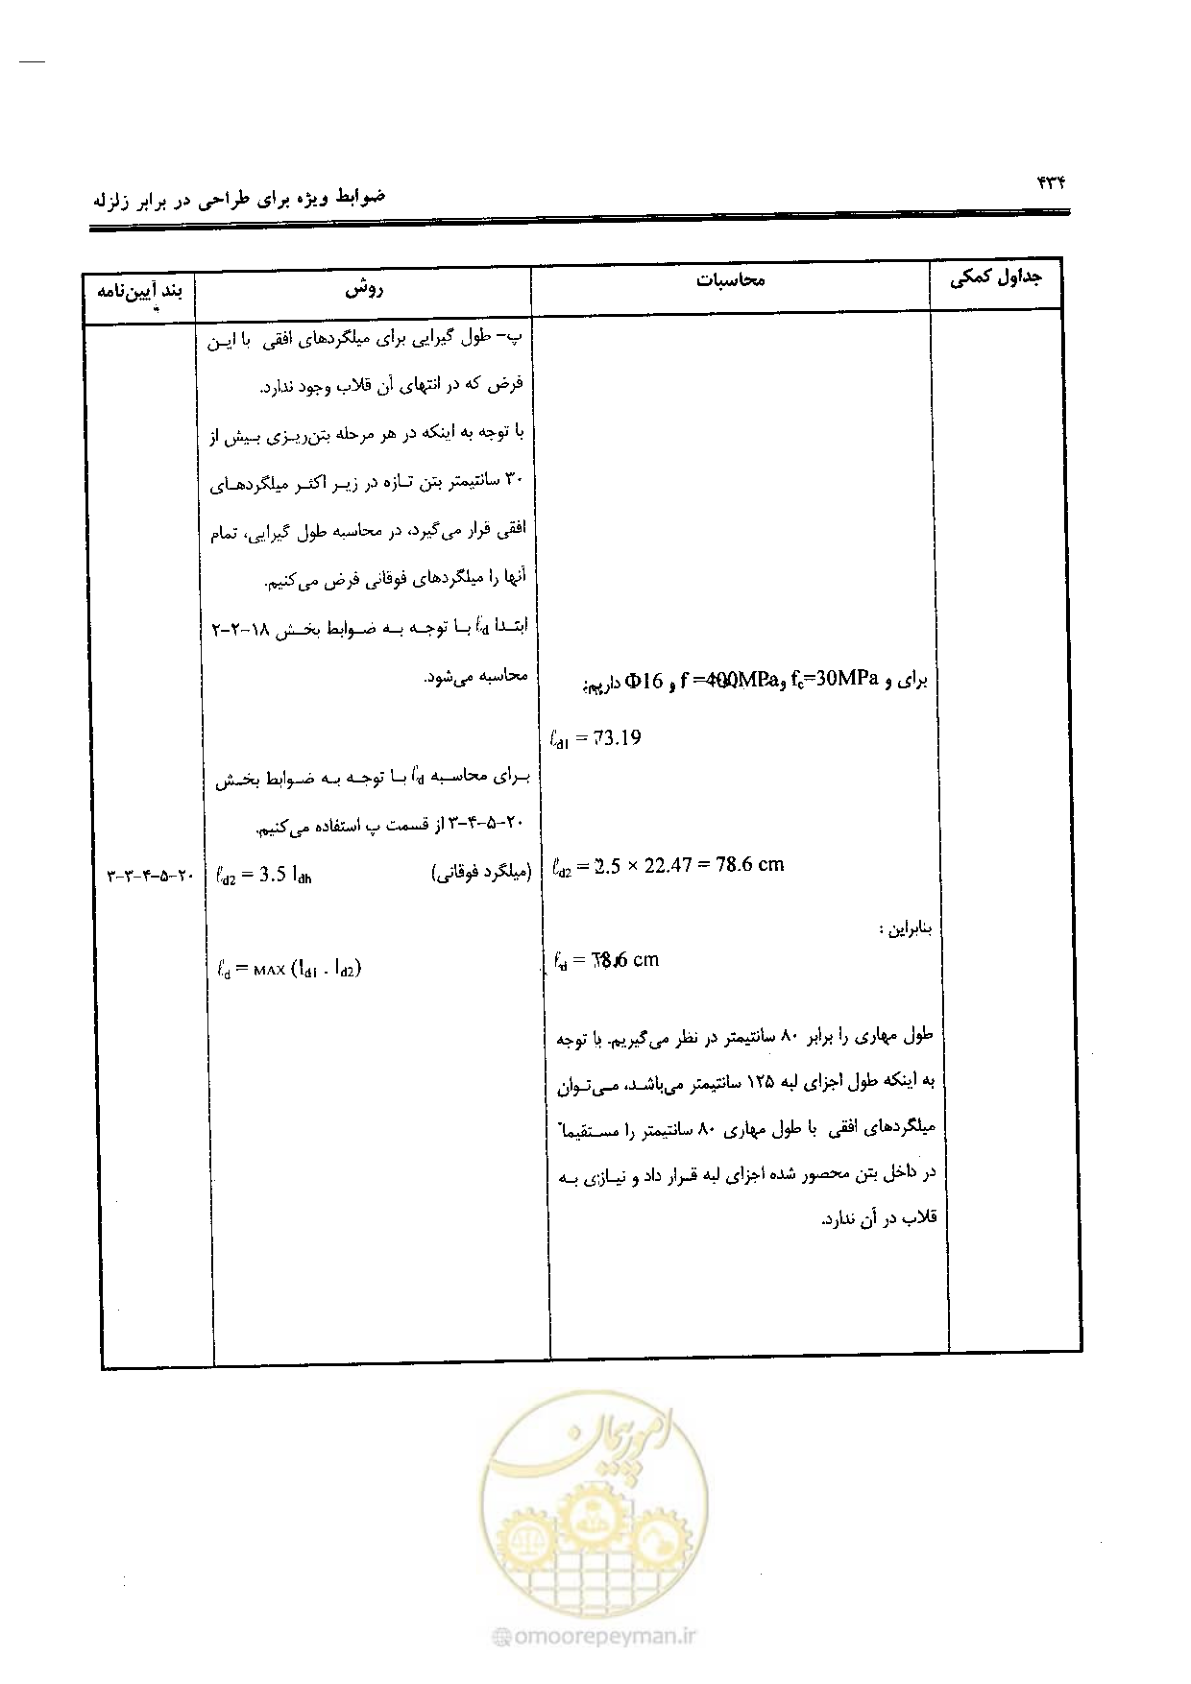 ۴۳۴
ضوابط ویژه برای طراحی در برابر زلزله
بند آیین‌نامه
روش
محاسبات
جداول کمکی
پ- طول گیرایی برای میلگردهای افقی با این
فرض که در انتهای آن قلاب وجود ندارد.
با توجه به اینکه در هر مرحله بتن‌ریزی بیش از
۳۰ سانتیمتر بتن تازه در زیر اکثر میلگردهای
افقی قرار می‌گیرد، در محاسبه طول گیرایی، تمام
آنها را میلگردهای فوقانی فرض می‌کنیم.
ابتدا ℓd با توجه به ضوابط بخش ۱۸-۲-۲
محاسبه می‌شود.
برای و fc=30MPa و f =400MPa و Φ16 داریم:
ℓd1 = 73.19
برای محاسبه ℓd با توجه به ضوابط بخش
۲۰-۵-۴-۳ از قسمت پ استفاده می‌کنیم.
۲۰-۵-۴-۳-۳
ℓd2 = 3.5 ldh (میلگرد فوقانی)
ℓd2 = 2.5 × 22.47 = 78.6 cm
بنابراین :
ℓd = MAX (ld1 . ld2)
ℓd = 78.6 cm
طول مهاری را برابر ۸۰ سانتیمتر در نظر می‌گیریم. با توجه
به اینکه طول اجزای لبه ۱۲۵ سانتیمتر می‌باشد، می‌توان
میلگردهای افقی با طول مهاری ۸۰ سانتیمتر را مستقیماً
در داخل بتن محصور شده اجزای لبه قرار داد و نیازی به
قلاب در آن ندارد.
امور پیمان
@omoorepeyman.ir